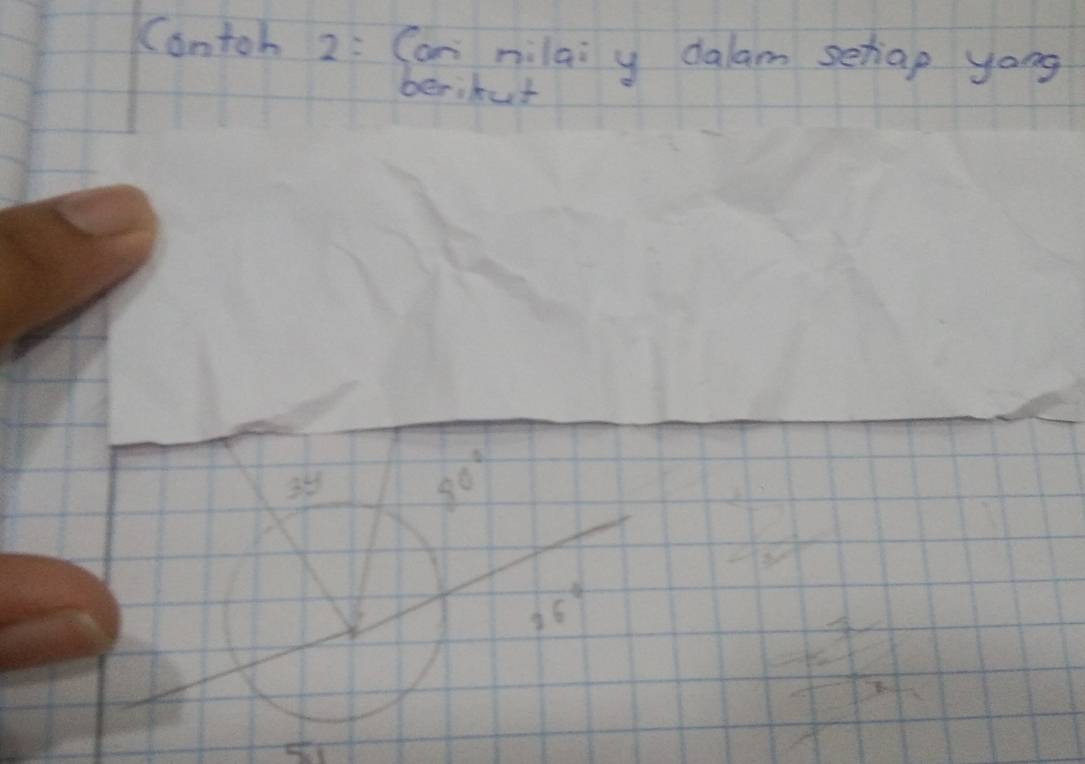 Contoh 2: Cari nilai y dalam setiap yang
berikut
3y
80°